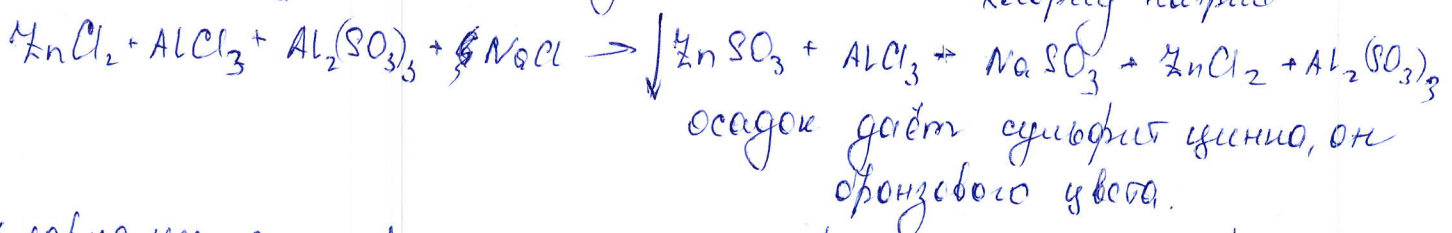 хлорид натрия
ZnCl₂ + AlCl₃ + Al₂(SO₃)₃ + NaCl → ↓ZnSO₃ + AlCl₃ + NaSO₃ + ZnCl₂ + Al₂(SO₃)₃
осадок даёт сульфит цинка, он
бронзового цвета.